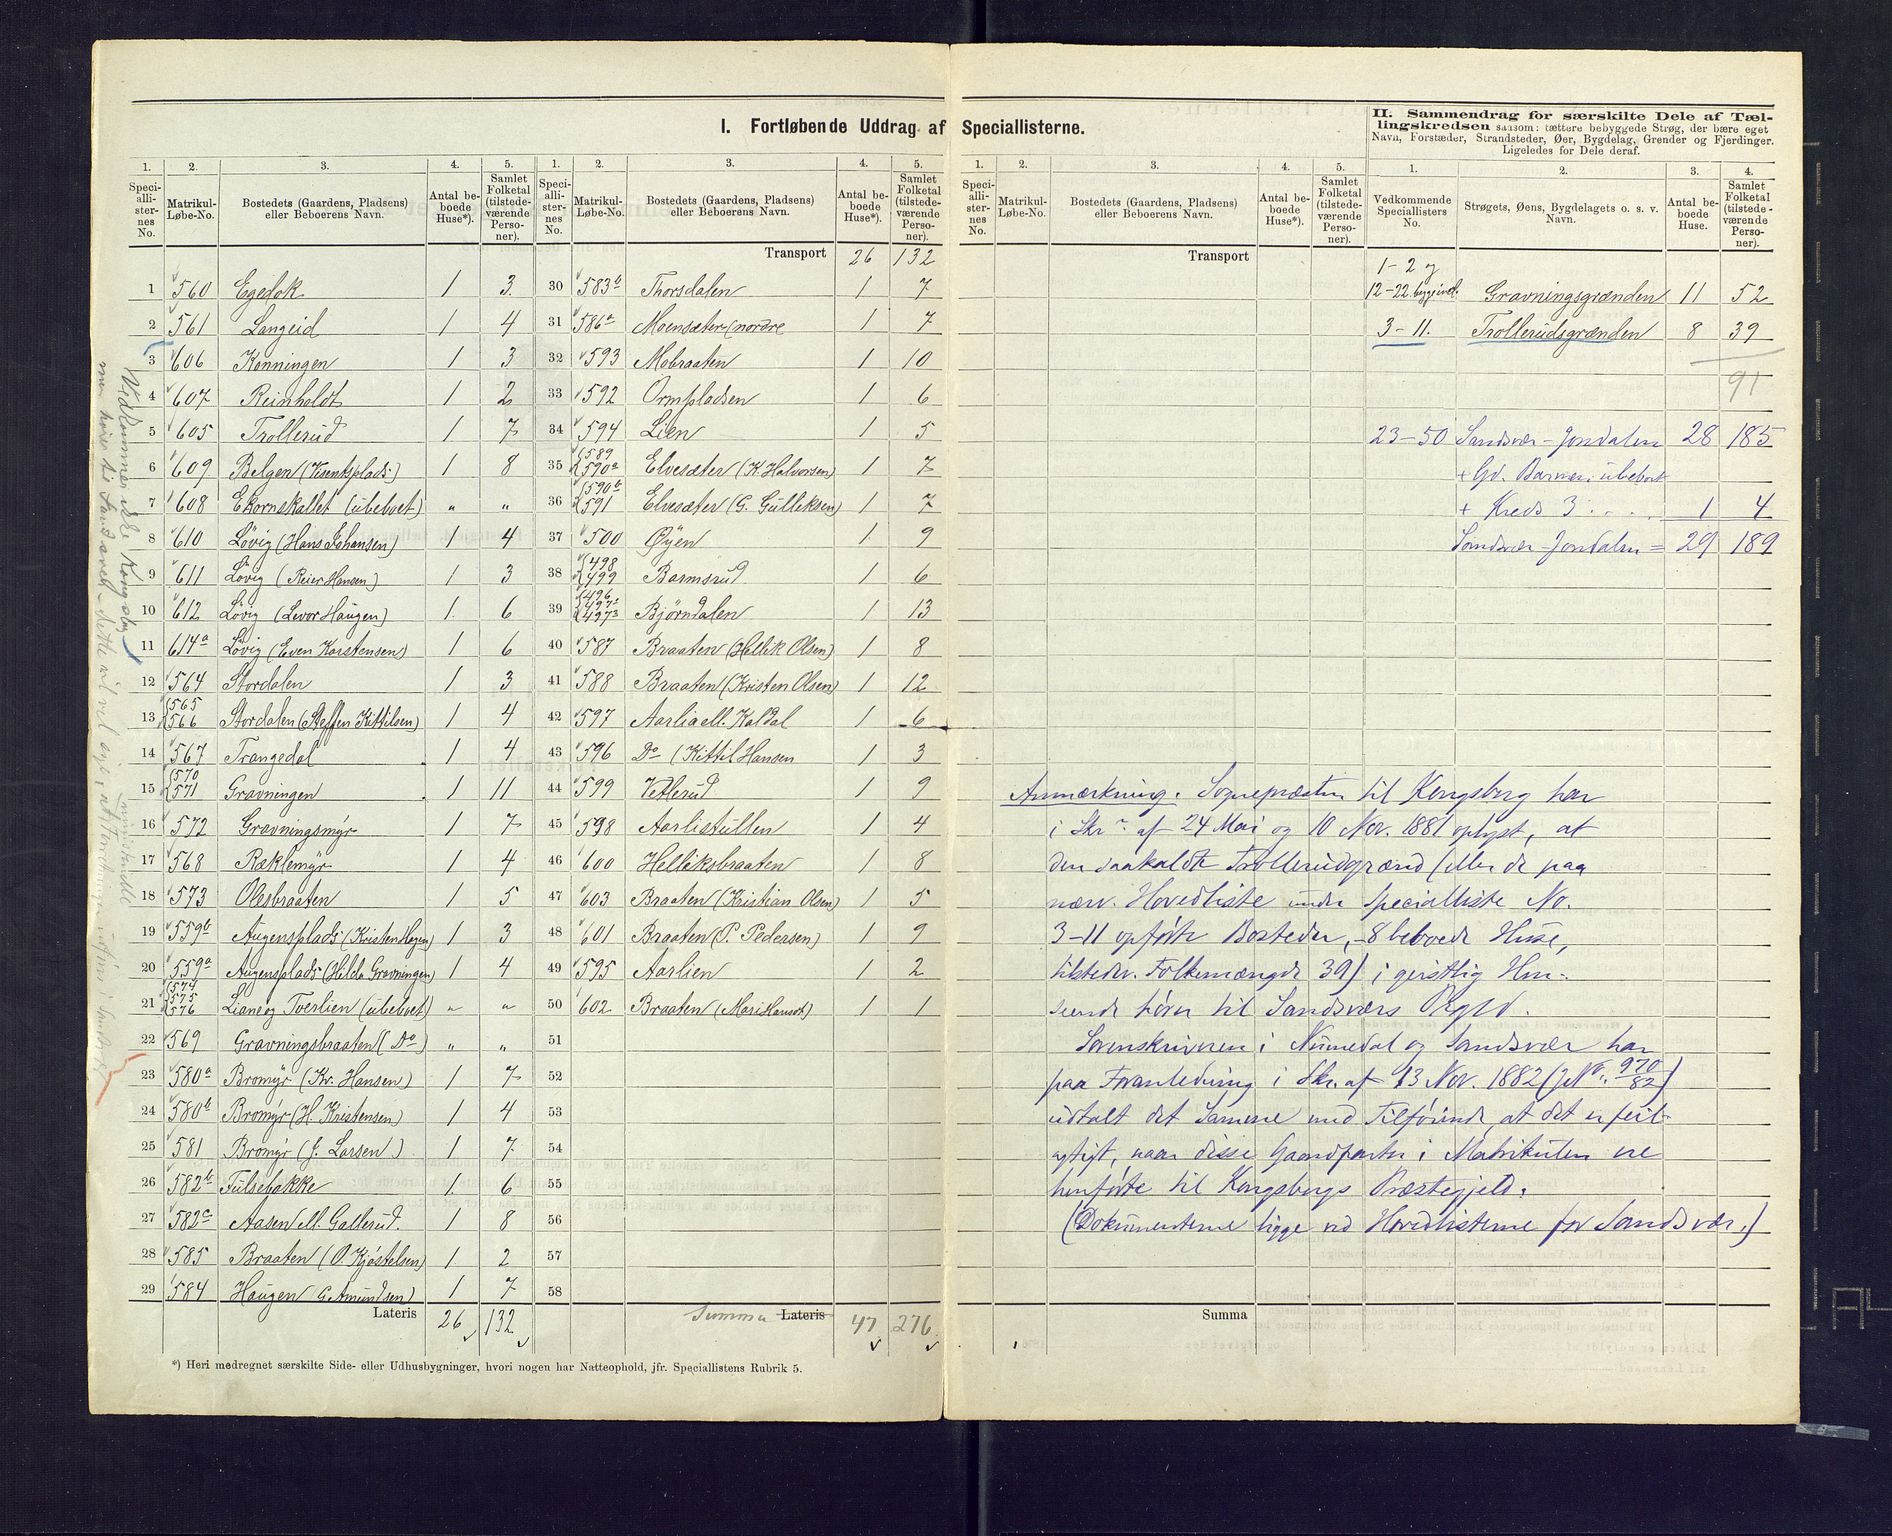 I. Fortløbende Uddrag af Speciallisterne.
II. Sammendrag for særskilte Dele af Tæl-
lingskredsen saasom: tættere bebyggede Strøg, der bære eget
Navn, Forstæder, Strandsteder, Øer, Bygdelag, Grender og Fjerdinger.
Ligeledes for Dele deraf.
1. 2. 3. 4. 5.
Speciallisternes No. Matrikul-Løbe-No. Bostedets (Gaardens, Pladsens) eller Beboerens Navn. Antal beboede Huse*). Samlet Folketal (tilstedeværende Personer).
1 560 Egedok 1 3
2 561 Langeid 1 4
3 606 Konningen 1 3
4 607 Reinholdt 1 2
5 605 Trollerud 1 7
6 609 Belgen (Kientsplads) 1 8
7 608 Ekornskallet (ubeboet) " "
8 610 Løvig (Hans Johansen) 1 4
9 611 Løvig (Reier Hansen) 1 3
10 612 Løvig (Levor Haugen) 1 6
11 614a Løvig (Even Karstensen) 1 6
12 564 Stordalen 1 3
13 565 566 Stordalen (Steffen Kittilsen) 1 4
14 567 Trangedal 1 4
15 570 571 Gravningen 1 11
16 572 Gravningsmyr 1 7
17 568 Ræklemyr 1 4
18 573 Olesbraaten 1 5
19 559b Augensplads (Kristen Hegen) 1 3
20 559a Augensplads (Hilda Gravningen) 1 4
21 574 575 576 Lian og Tverlien (ubeboet) " "
22 569 Gravningsbraaten (Do) " "
23 580a Bromyr (Kr. Hansen) 1 7
24 580b Bromyr (H. Kristensen) 1 4
25 581 Bromyr (J. Larsen) 1 7
26 582b Fulsebakke 1 6
27 582c Aasen ell. Gallerud 1 8
28 585 Braaten (O. Kjøstelsen) 1 2
29 584 Haugen G. Amundsen) 1 7
Lateris 26 132
*) Heri medregnet særskilte Side- eller Udhusbygninger, hvori nogen har Natteophold, jfr. Speciallistens Rubrik 5.
1. 2. 3. 4. 5.
Speciallisternes No. Matrikul-Løbe-No. Bostedets (Gaardens, Pladsens) eller Beboerens Navn. Antal beboede Huse*). Samlet Folketal (tilstedeværende Personer).
Transport 26 132
30 583b Thorsdalen 1 7
31 586a Moensæter (nordre 1 7
32 593 Mobraaten 1 10
33 592 Ormpladsen 1 6
34 594 Lien 1 5
35 589 590a Elvesæter (K. Halvorsen) 1 7
36 590b 591 Elvesæter (G. Gulliksen) 1 7
37 500 Øyen 1 9
38 498 499 Barmsrud 1 6
39 496 497 497 Bjørndalen 1 13
40 587 Braaten (Hellik Olsen) 1 8
41 588 Braaten (Kristen Olsen) 1 12
42 597 Aarlia ell. Kaldal 1 6
43 596 Do (Kittil Hansen 1 3
44 599 Vetlerud 1 9
45 598 Aarlistullen 1 4
46 600 Helliksbraaten 1 8
47 603 Braaten (Kristian Olsen) 1 5
48 601 Braaten (P. Pedersen) 1 9
49 595 Aarlien 1 2
50 602 Braaten (Mari Hansd.) 1 1
51
52
53
54
55
56
57
58
Summa Lateris 47 276
1. 2. 3. 4. 5.
Speciallisternes No. Matrikul-Løbe-No. Bostedets (Gaardens, Pladsens) eller Beboerens Navn. Antal beboede Huse*). Samlet Folketal (tilstedeværende Personer).
Transport
Summa
1. 2. 3. 4.
Vedkommende Speciallisters No. Strøgets, Øens, Bygdelagets o. s. v. Navn. Antal beboede Huse. Samlet Folketal (tilstedeværende Personer).
1-2 og
12-22 Gravningsgrænden 11 52
3-11. Trollerudsgrænden 8 39
91
23-50 Sandsvær-Jondalen 28 185
+ Gd. Barmen, ubeboet
+ Kreds 3 .... 1 4
Sandsvær-Jondalen = 29 189
Anmærkning. Sognepræsten til Kongsberg har
i Skr. af 24 Mai og 10 Nov. 1881 oplyst, at
den saakaldte Trollerudgrænd (eller de paa
nærv. Hovedliste under Specialliste No.
3-11 opførte Bosteder, - 8 beboede Huse,
tilstedev. Folkemængde 39) i geistlig Hen-
seende hører til Sandsværs Prgld.
Sorenskriveren i Numedal og Sandsvær har
paa Foranledning i Skr. af 13 Nov. 1882 (JNo. 970/82)
udtalt det Samme med Tilføiende, at det er feil-
agtigt, naar disse Gaardparter i Matrikulen ere
henførte til Kongsbergs Præstegjeld.
(Dokumenterne ligge ved Hovedlisterne for Sandsvær.)
Vedkommer ikke Kongsberg